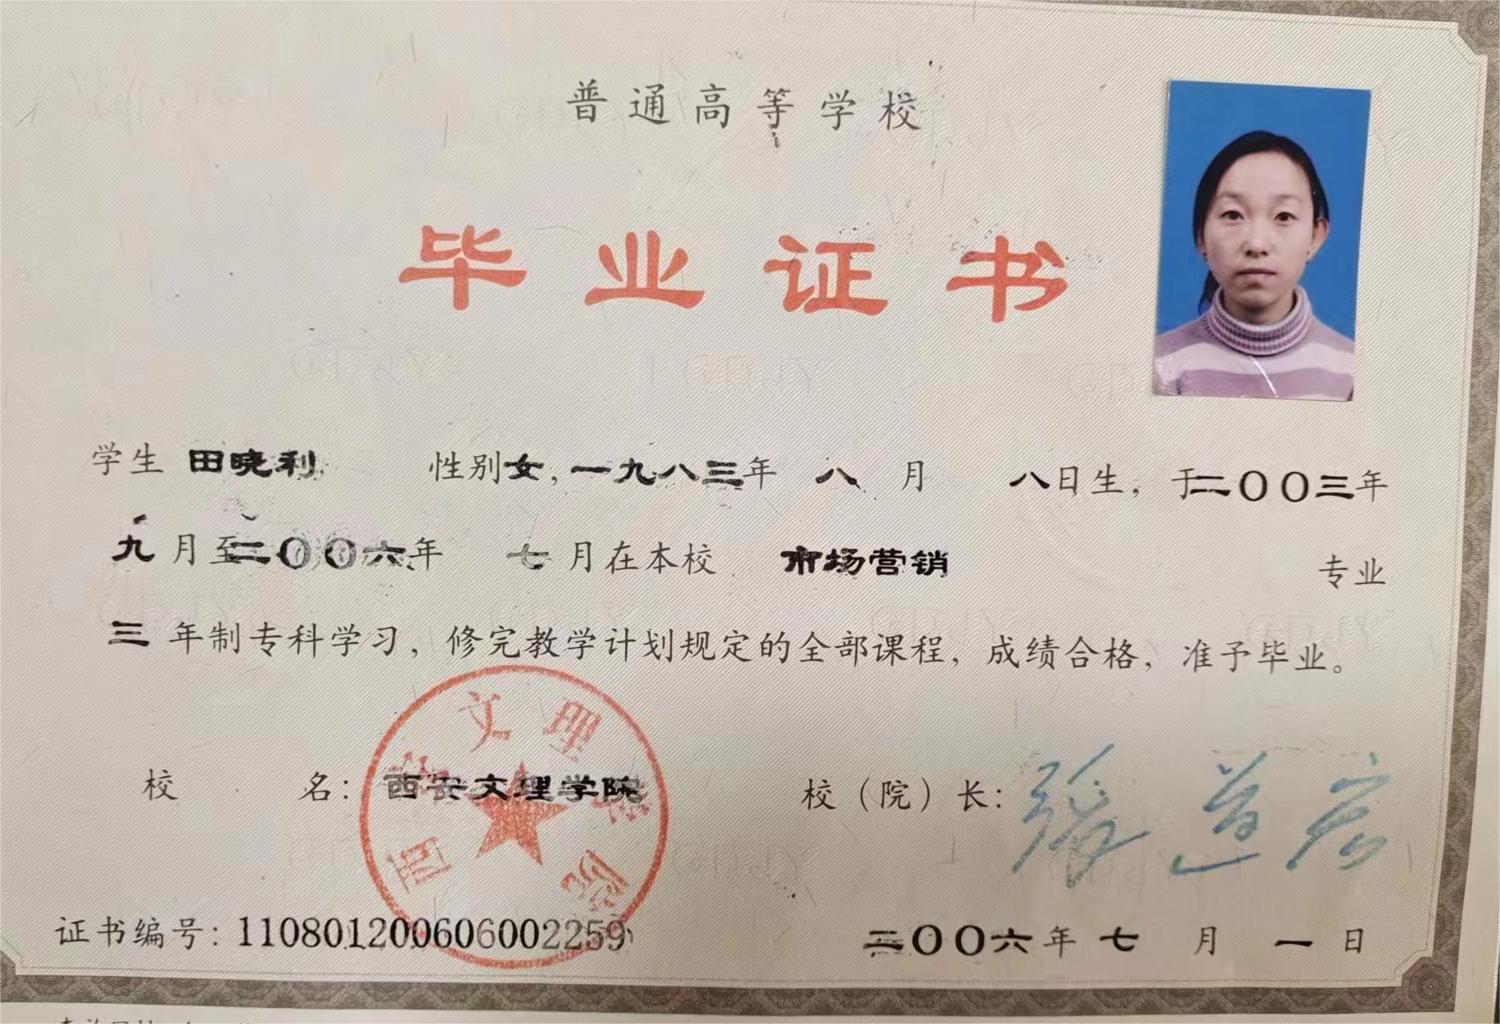 普通高等学校
毕业证书
学生 田晓利 性别女，一九八三年 八 月 八日生，于二〇〇三年
九月至二〇〇六年 七月在本校 市场营销 专业
三 年制专科学习，修完教学计划规定的全部课程，成绩合格，准予毕业。
校 名：西安文理学院
西安文理学院
校（院）长：张道宏
证书编号：110801200606002259
二〇〇六年 七 月 一 日